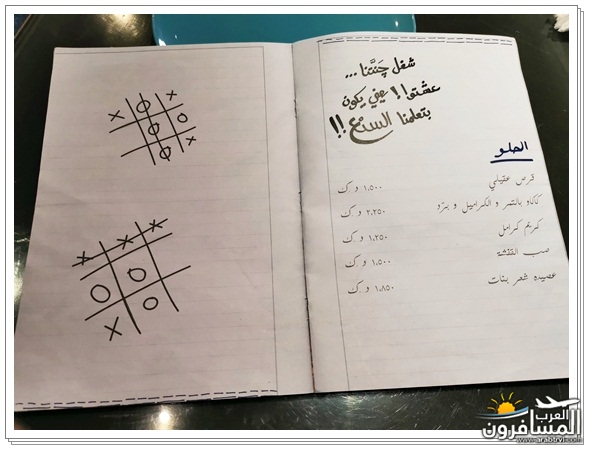 شغل چنّنا ...
عشتوا !! عيني يكون
بتعلمنا السنع !!
الحلو
قرص عقيلي ١،٥٠٠ د.ك
كاكاو بالتمر و الكراميل و بترد ٢،٢٥٠ د.ك
كريم كرامل ١،٢٥٠ د.ك
صب القفشة ١،٥٠٠ د.ك
عصيده شعر بنات ١،٨٥٠ د.ك
العرب
المسافرون
www.arabtrvl.com